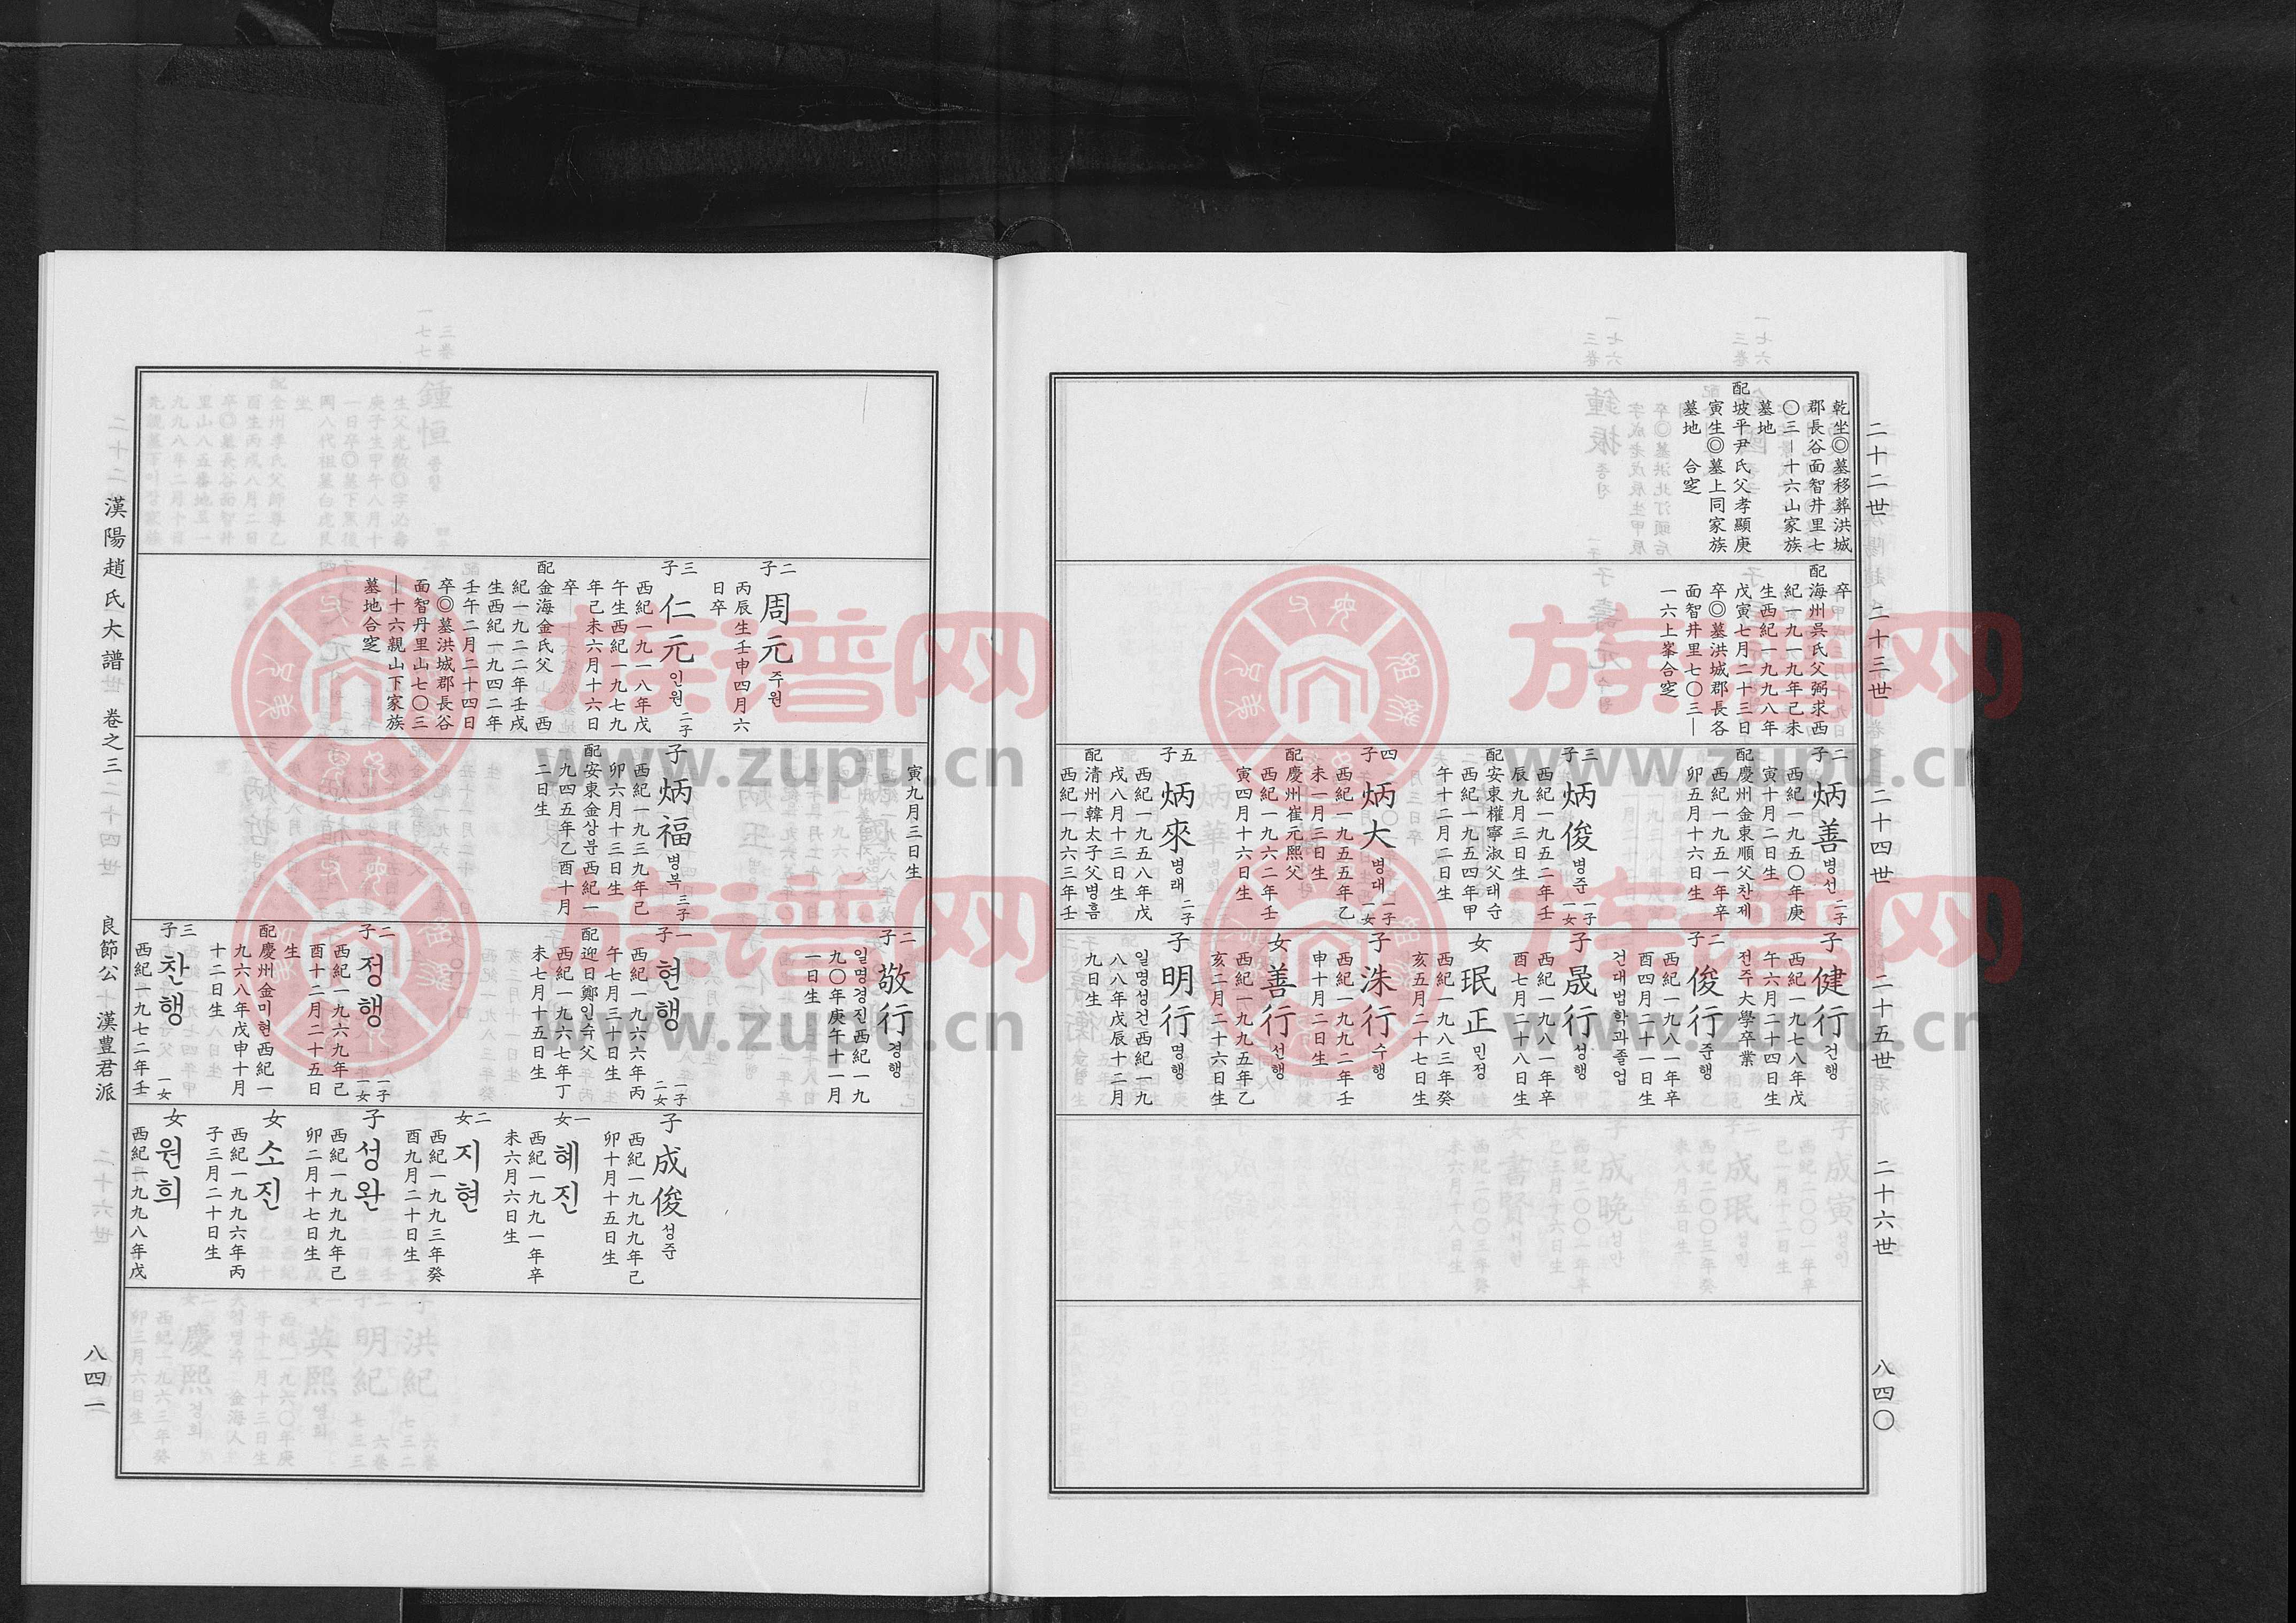 二十二世
二十三世
二十四世
二十五世
二十六世
八四〇
乾坐◎墓移葬洪城
郡長谷面智井里七
〇三—十六山家族
墓地
配坡平尹氏父孝顯庚
寅生◎墓上同家族
墓地 合窆
卒
配海州吳氏父弼求西
紀一九一九年己未
生西紀一九九八年
戊寅七月二十三日
卒◎墓洪城郡長各
面智井里七〇三—
一六上峯合窆
二子 炳善 병선 二子
西紀一九五〇年庚
寅十月二日生
配慶州金東順父찬제
西紀一九五一年辛
卯五月十六日生
三子 炳俊 병준 一子一女
西紀一九五二年壬
辰九月三日生
配安東權寧淑父태순
西紀一九五四年甲
午十二月二日生
四子 炳大 병대 一子一女
西紀一九五五年乙
未一月三日生
配慶州崔元熙父
西紀一九六二年壬
寅四月十六日生
五子 炳來 병래 二子
西紀一九五八年戊
戌八月十三日生
配清州韓太子父병흠
西紀一九六三年壬
子 健行 건행
西紀一九七八年戊
午六月二十四日生
전주大學卒業
二子 俊行 준행
西紀一九八一年辛
酉四月二十一日生
건대법학과졸업
子 晟行 성행
西紀一九八一年辛
酉七月二十八日生
女 珉正 민정
西紀一九八三年癸
亥五月二十七日生
子 洙行 수행
西紀一九九二年壬
申十月二日生
女 善行 선행
西紀一九九五年乙
亥二月二十六日生
子 明行 명행
일명성건西紀一九
八八年戊辰十二月
九日生
二子 周元 주원
丙辰生壬申四月六
日卒
三子 仁元 인원 二子
西紀一九一八年戊
午生西紀一九七九
年己未六月十六日
卒
配金海金氏父 西
紀一九二二年壬戌
生西紀一九四二年
壬午二月二十四日
卒◎墓洪城郡長谷
面智丹里山七〇三
—十六親山下家族
墓地合窆
寅九月三日生
子 炳福 병복 三子
西紀一九三九年己
卯六月十三日生
配安東金상분西紀一
九四五年乙酉十月
二日生
二子 敬行 경행
일명경진西紀一九
九〇年庚午十一月
一日生
一子 현행 一子二女
西紀一九六六年丙
午七月三十日生
配迎日鄭인숙父
西紀一九六七年丁
未七月十五日生
二子 정행 一子一女
西紀一九六九年己
酉十二月二十五日
生
配慶州金미현西紀一
九六八年戊申十月
十二日生
三子 찬행 一女
西紀一九七二年壬
子 成俊 성준
西紀一九九九年己
卯十月十五日生
一女 혜진
西紀一九九一年辛
未六月六日生
二女 지현
西紀一九九三年癸
酉九月二十日生
子 성완
西紀一九九九年己
卯二月十七日生
女 소진
西紀一九九六年丙
子三月二十日生
女 원희
西紀一九九八年戊
漢陽趙氏大譜 卷之三 良節公 漢豊君派
八四一
族谱网
www.zupu.cn
族谱网
www.zupu.cn
族谱网
www.zupu.cn
族谱网
www.zupu.cn